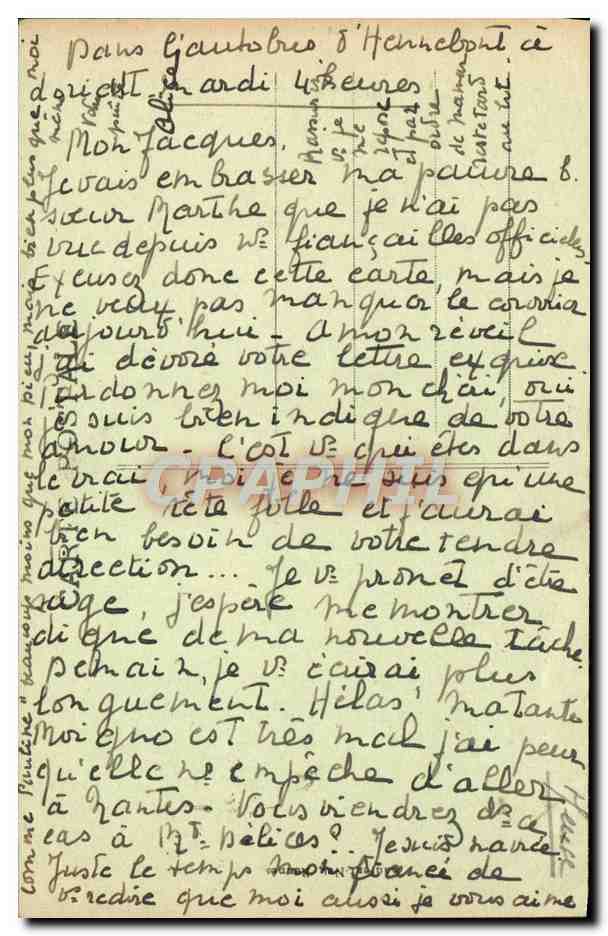 Dans l'autobus d'Hennebont à
Lorient. mardi 4 heures
Mon Jacques.
Je vais embrasser ma pauvre b.
sœur Marthe que je n'ai pas
vue depuis ns. fiançailles officielles
Excusez donc cette carte, mais je
ne veux pas manquer le courrier
aujourd'hui - A mon réveil
j'ai dévoré votre lettre exquise
Pardonnez moi mon chéri, oui
je suis bien indigne de votre
amour - C'est vs. qui êtes dans
le vrai, moi je ne suis qu'une
petite tête folle et j'aurai
bien besoin de votre tendre
direction... Je vs. promet d'être
sage, j'espère me montrer
digne de ma nouvelle tâche.
Demain, je vs. écirai plus
longuement. Hélas, ma tante
est très mal j'ai peur
qu'elle ns. empêche d'aller
à Nantes. Vous viendrez ds. ce
cas à Délices? Je suis navrée
Juste le temps mon fiancé de
vs. redire que moi aussi je vous aime
comme Pauline" beaucoup moins que mon Dieu, moins bien plus que moi
même
Rassurez
vs. je
me
repose
et par
ordre
de maman
reste tard
au lit.
CARTE POSTALE
CPAPHIL